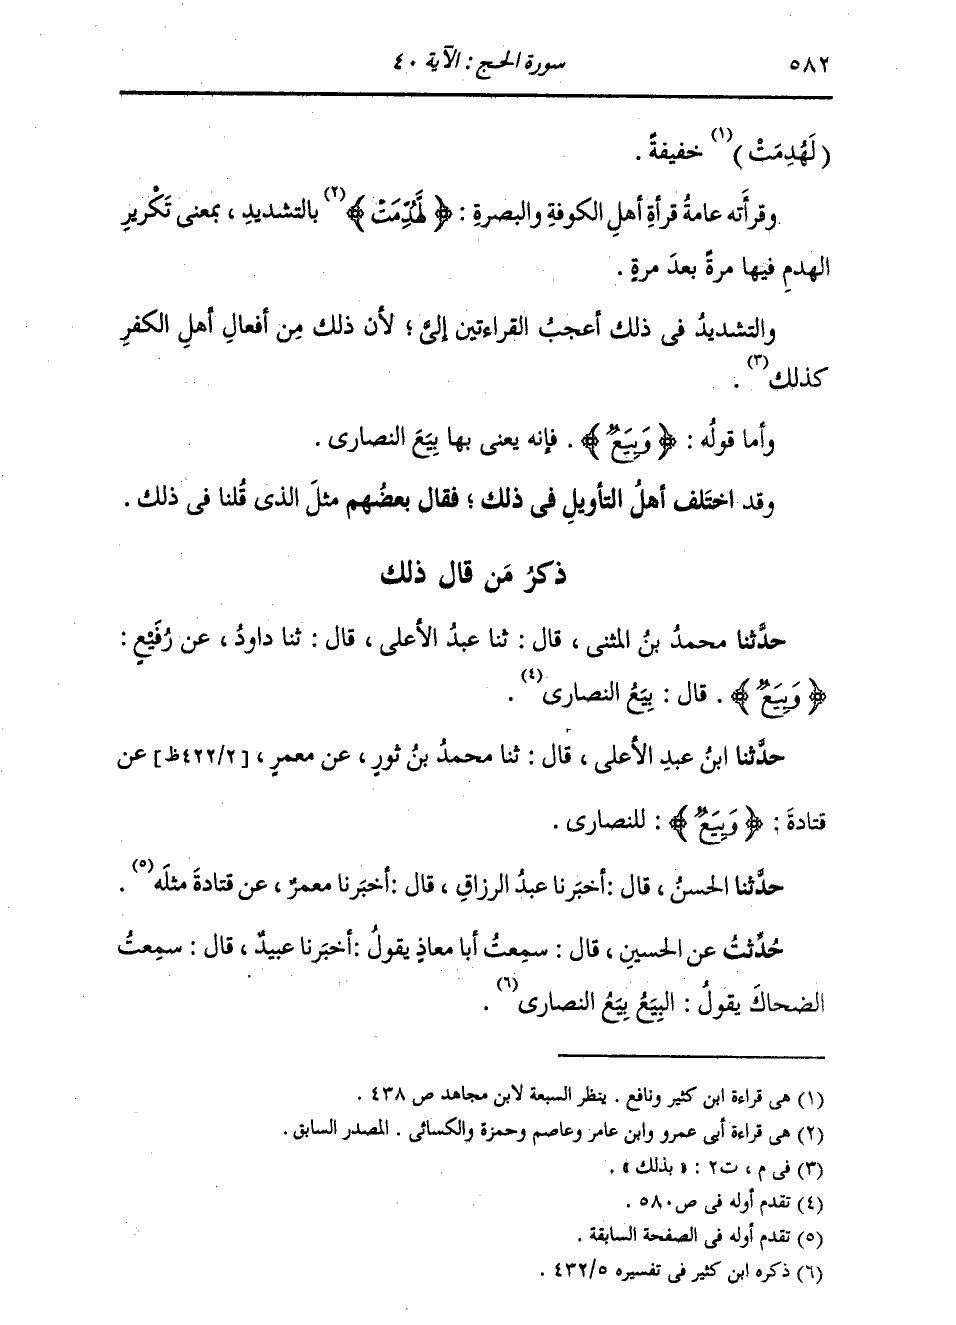 ٥٨٢
سورة الحج : الآية ٤٠
( لَهُدِمَتْ )(١) خفيفةً .
وقرأَته عامةُ قرأةِ أهلِ الكوفةِ والبصرةِ : ﴿ لَّهُدِّمَتْ ﴾(٢) بالتشديدِ ، بمعنى تَكْريرِ
الهدمِ فيها مرةً بعدَ مرةٍ .
والتشديدُ فى ذلك أعجبُ القراءتين إلىَّ ؛ لأن ذلك مِن أفعالِ أهلِ الكفرِ
كذلك(٣) .
وأما قولُه : ﴿ وَبِيَعٌ ﴾ . فإنه يعنى بها بِيَعَ النصارى .
وقد اختَلف أهلُ التأويلِ فى ذلك ؛ فقال بعضُهم مثلَ الذى قُلنا فى ذلك .
ذكرُ مَن قال ذلك
حدَّثنا محمدُ بنُ المثنى ، قال : ثنا عبدُ الأعلى ، قال : ثنا داودُ ، عن رُفَيْعٍ :
﴿ وَبِيَعٌ ﴾ . قال : بِيَعُ النصارى(٤) .
حدَّثنا ابنُ عبدِ الأعلى ، قال : ثنا محمدُ بنُ ثورٍ ، عن معمرٍ ، [٤٢٢/٢ظ] عن
قتادةَ : ﴿ وَبِيَعٌ ﴾ : للنصارى .
حدَّثنا الحسنُ ، قال : أخبَرنا عبدُ الرزاقِ ، قال : أخبَرنا معمرٌ ، عن قتادةَ مثلَه(٥) .
حُدِّثتُ عن الحسينِ ، قال : سمِعتُ أبا معاذٍ يقولُ : أخبَرنا عبيدٌ ، قال : سمِعتُ
الضحاكَ يقولُ : البِيَعُ بِيَعُ النصارى(٦) .
(١) هى قراءة ابن كثير ونافع . ينظر السبعة لابن مجاهد ص ٤٣٨ .
(٢) هى قراءة أبى عمرو وابن عامر وعاصم وحمزة والكسائى . المصدر السابق .
(٣) فى م ، ت٢ : « بذلك » .
(٤) تقدم أوله فى ص٥٨٠ .
(٥) تقدم أوله فى الصفحة السابقة .
(٦) ذكره ابن كثير فى تفسيره ٤٣٢/٥ .